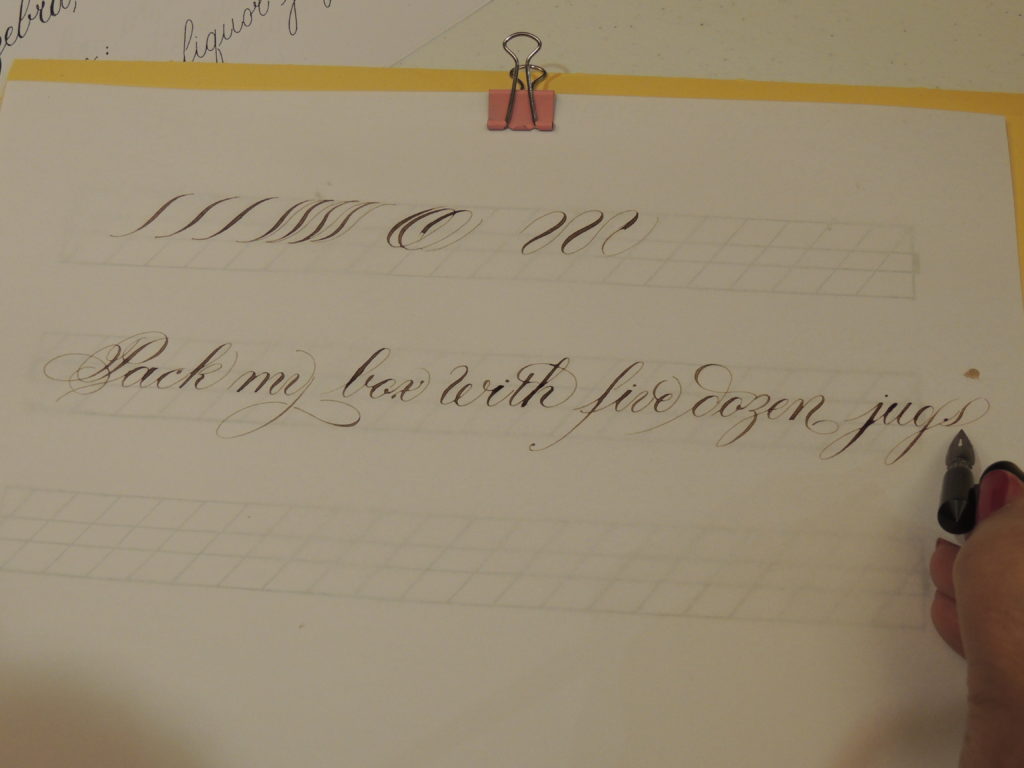 zebra,
liquor
Pack my box with five dozen jugs